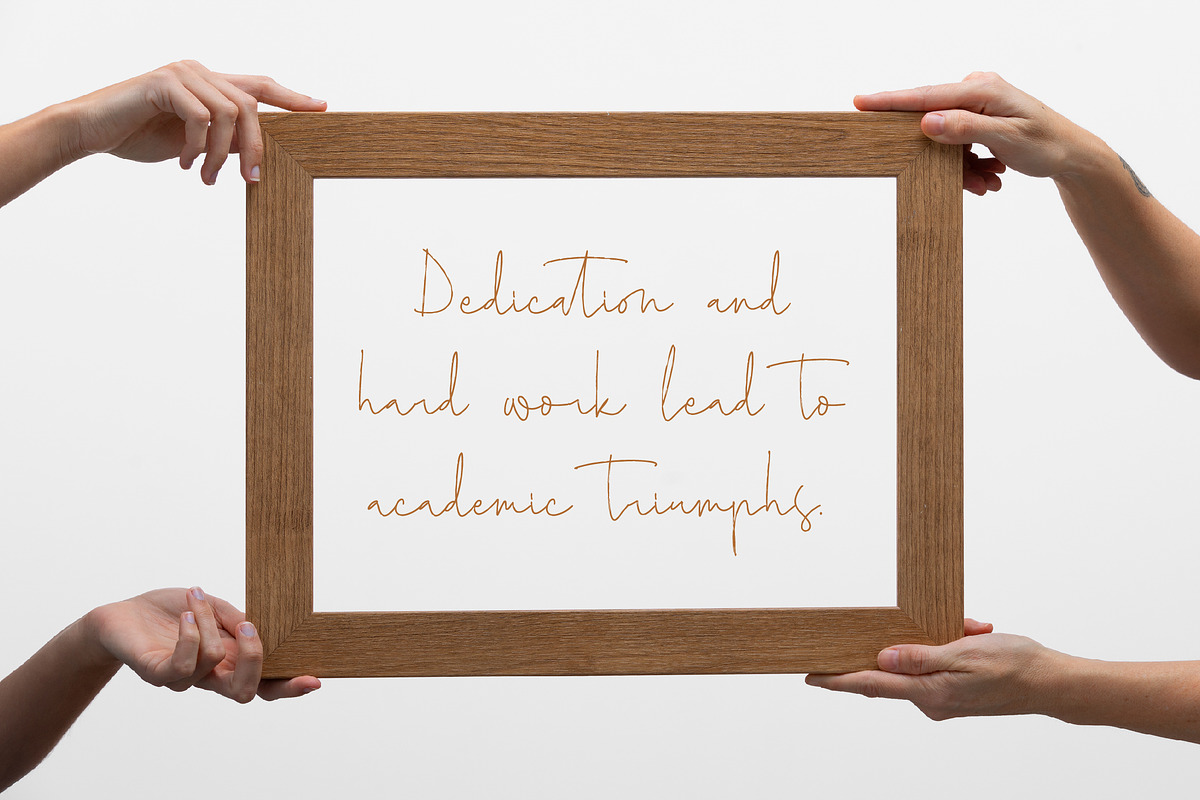 Dedication and
hard work lead to
academic triumphs.